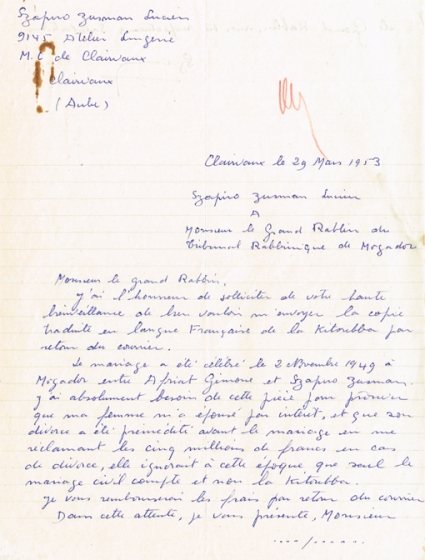 Szapiro Zusman Lucien
9145 Atelier Lingerie
M.C de Clairvaux
Clairvaux
(Aube)
Clairvaux le 29 Mars 1953
Szapiro Zusman Lucien
A
Monsieur le Grand Rabbin du
Tribunal Rabbinique de Mogador
Monsieur le grand Rabbin,
J'ai l'honneur de solliciter de votre haute
bienveillance de bien vouloir m'envoyer la copie
traduite en langue Française de la Kitoubba par
retour du courrier.
Le mariage a été célébré le 2 Novembre 1949 à
Mogador entre Afriat Gimone et Szapiro Zusman.
J'ai absolument besoin de cette pièce pour prouver
que ma femme m'a épousé par intérêt, et que son
divorce a été prémédité avant le mariage en me
réclamant les cinq millions de francs en cas
de divorce, elle ignorait à cette époque, que seul le
mariage civil compte et non la Kitoubba.
Je vous rembourserai les frais par retour du courrier
Dans cette attente, je vous présente, Monsieur